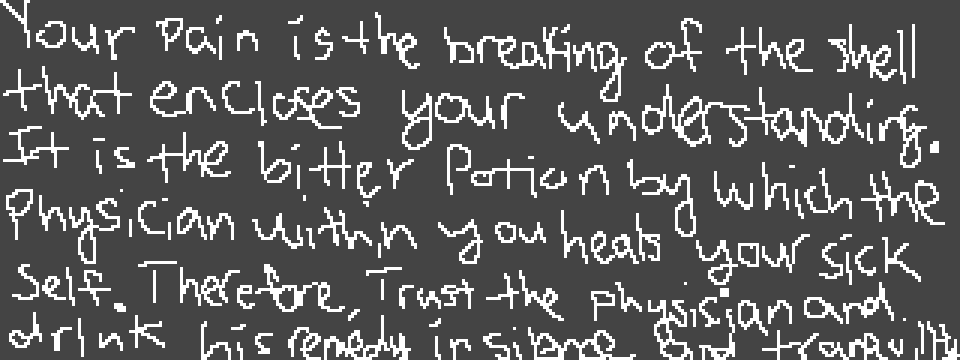 Your pain is the breaking of the shell
that encloses your understanding.
It is the bitter Potion by which the
Physician within you heals your sick
Self. Therefore, Trust the physician and
drink his remedy in silence and tranquility